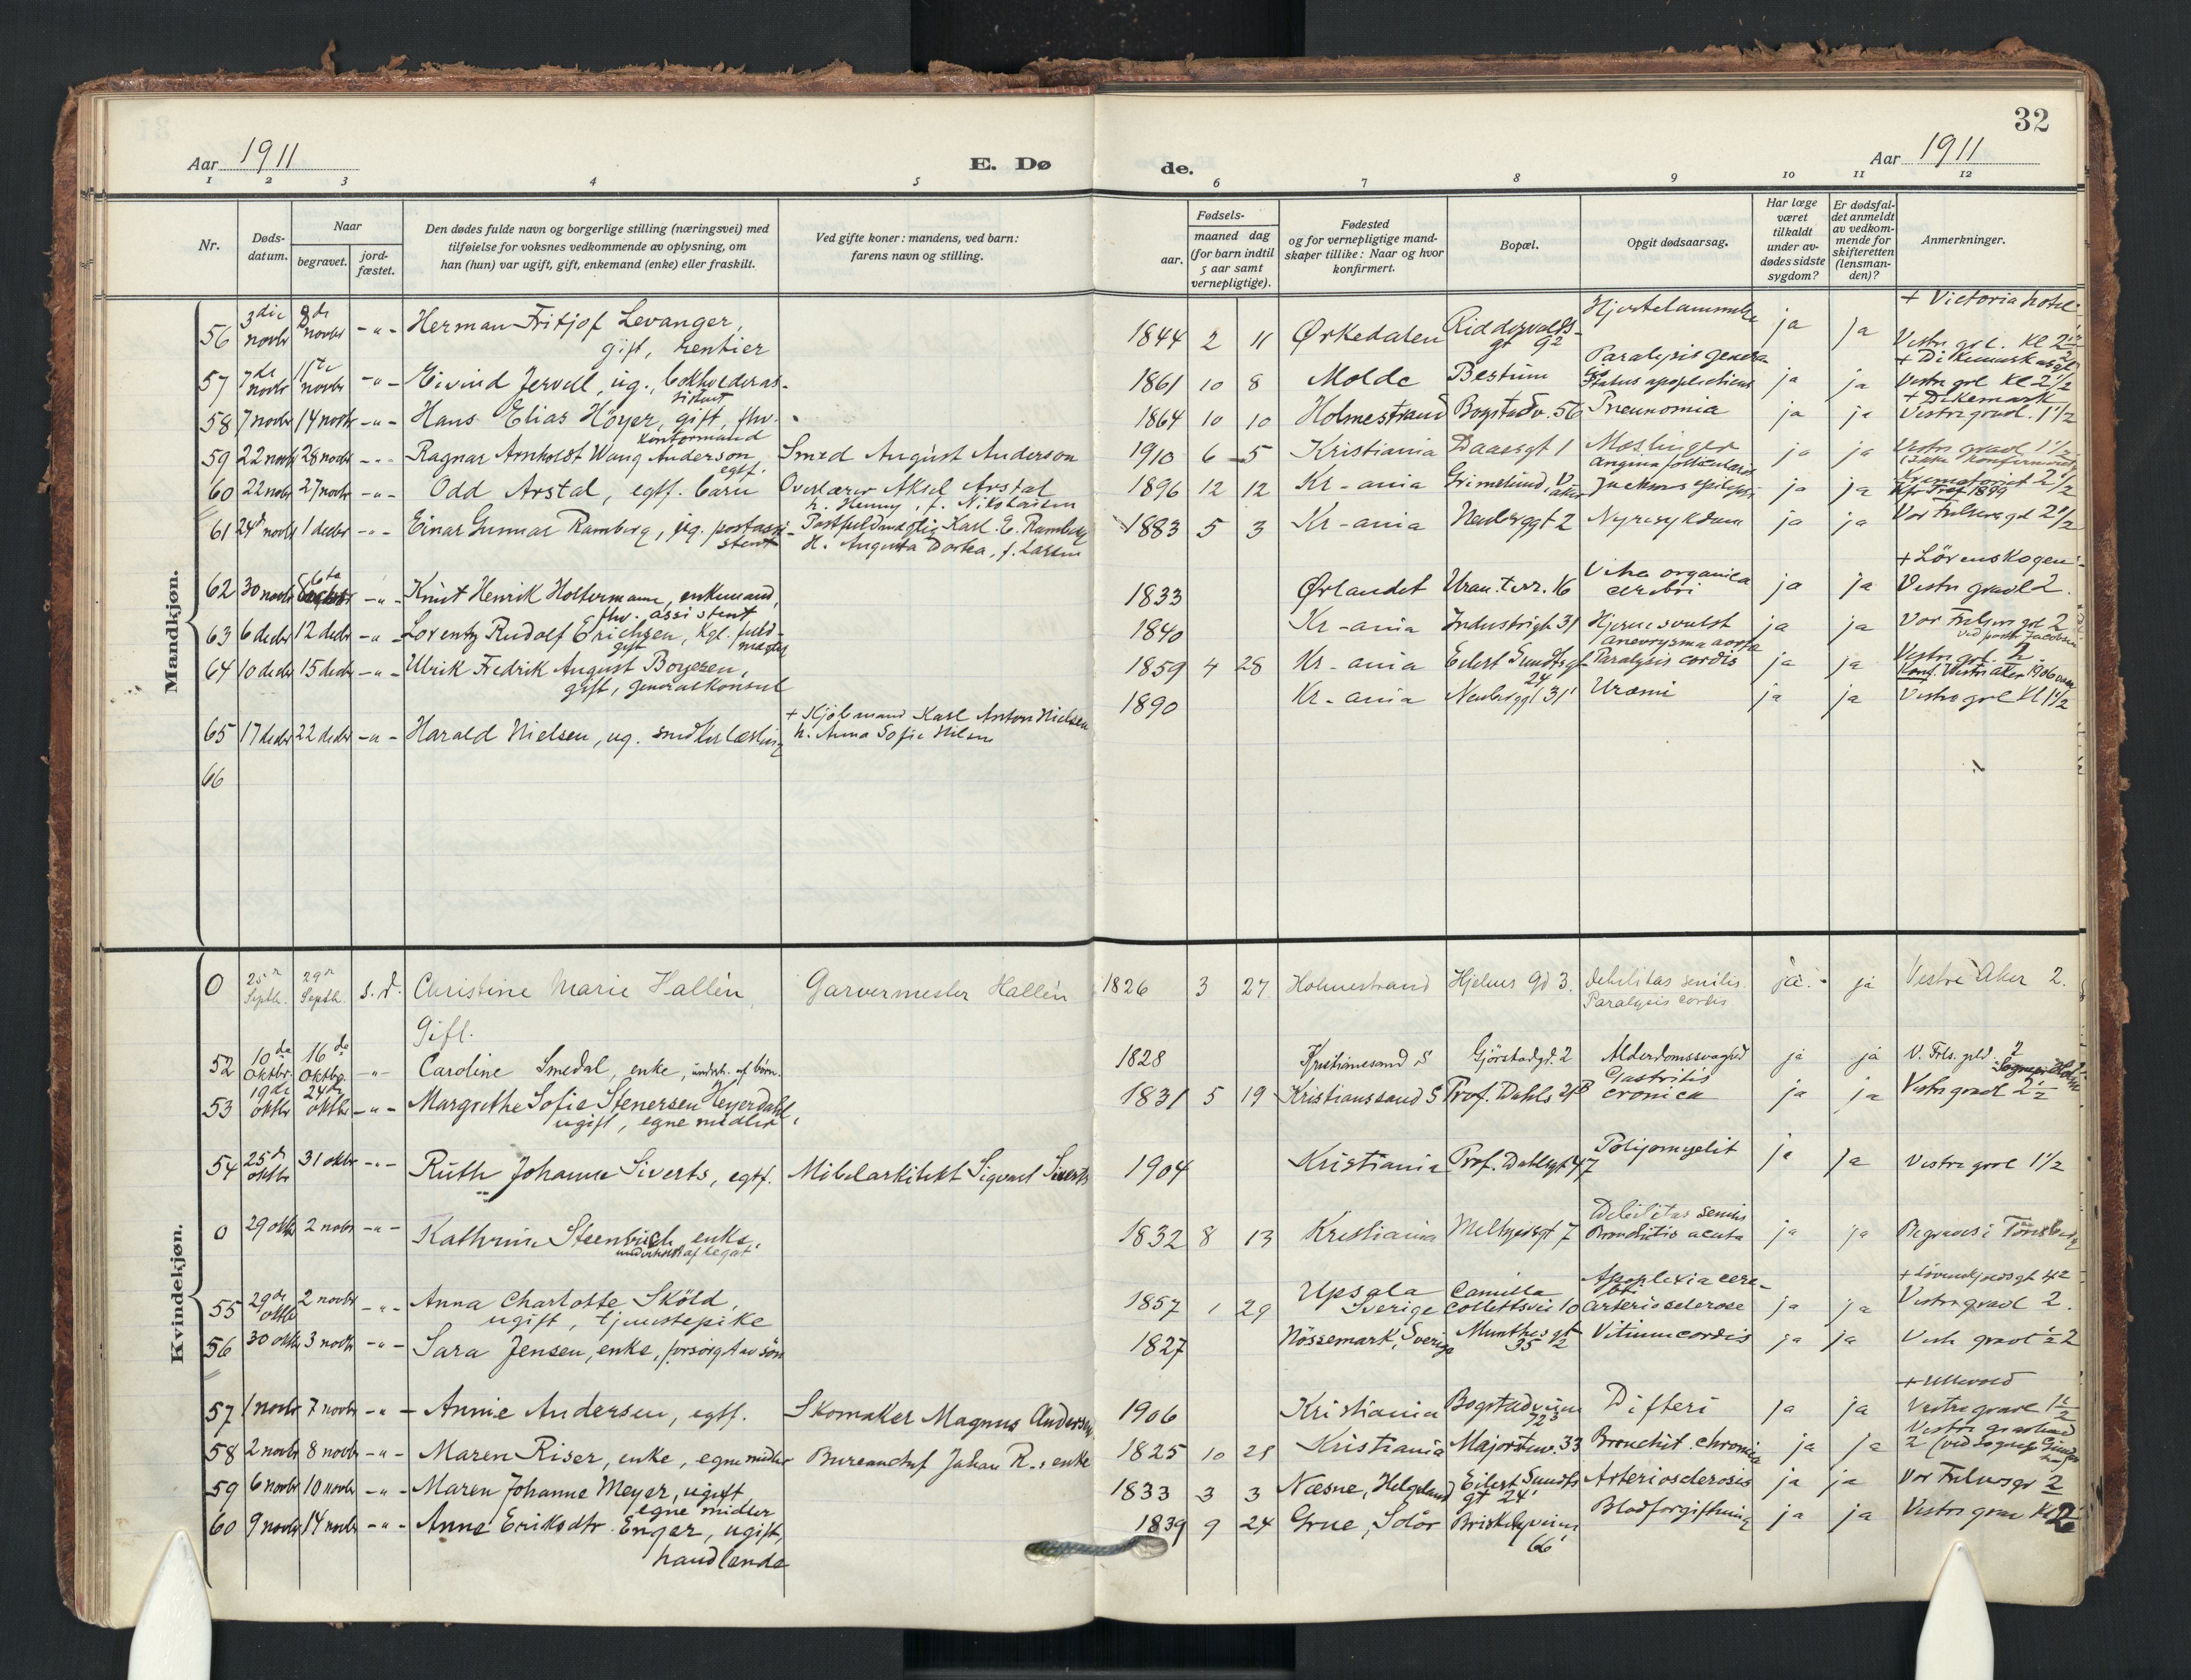 32
Aar 1911
E. Dø
de.
Aar 1911
1 2 3 4 5 6 7 8 9 10 11 12
Nr.
Døds-
datum.
Naar
begravet.
jord-
fæstet.
Den dødes fulde navn og borgerlige stilling (næringsvei) med
tilføielse for voksnes vedkommende av oplysning, om
han (hun) var ugift, gift, enkemand (enke) eller fraskilt.
Ved gifte koner: mandens, ved barn:
farens navn og stilling.
Fødsels-
aar.
maaned dag
(for barn indtil
5 aar samt
vernepligtige).
Fødested
og for vernepligtige mand-
skaper tillike: Naar og hvor
konfirmert.
Bopæl.
Opgit dødsaarsag.
Har læge
været
tilkaldt
under av-
dødes sidste
sygdom?
Er dødsfal-
det anmeldt
av vedkom-
mende for
skifteretten
(lensman-
den)?
Anmerkninger.
Mandkjøn.
56 3die novbr 8de novbr -"- Herman Fritjof Levanger,
gift, rentier
1844 2 11 Ørkedalen Riddervolds-
gt 9 ja ja + Victoria hotel
57 7de novbr 11te novbr -"- Eivind Jervell, ug., bokholderas-
sistent
1861 10 8 Molde Bestum Paralysis genera
Status apoplecticus ja ja Vestre grl kl 2 1/2
58 7 novbr 14 novbr -"- Hans Elias Höyer, gift, fhv.
kontormand
1864 10 10 Holmestrand Bogstadv. 56 Pneumonia ja ja + Dikemark
Vestre gravl. 1 1/2
59 22 novbr 28 novbr -"- Ragnar Arnholdt Wang Anderson
egtf.
Smed August Anderson
1910 6 5 Kristiania Daasgt 1 Meslinger ja ja Vestre gravl 1 1/2
60 22 novbr 27 novbr -"- Odd Arstal, egtf. barn
Overlærer Aksel Arstal
h. Henny, f. Nikolaisen
1896 12 12 Kr-ania Grimelund, V. aker angina follicularis ja ja Krematoriet 2 1/2
61 24de novbr 1 decbr -"- Einar Gunnar Ramberg, ug. postassi-
stent
Postfuldmægtig Karl E. Ramberg
H. Augusta Dortea, f. Larsen
1883 5 3 Kr-ania Neubggt 2 Nyresykdom ja ja Vor Frelsers gl 2 1/2
62 30 novbr 6te -"- Knut Henrik Holtermann, enkemand,
fhv. assistent
1833 Ørlandet Uran. terr. 16 organica
cerebri ja ja + Lörenskogen
Vestre gravl 2.
63 6 decbr 12 decbr -"- Lorentz Rudolf Erichsen, kgl. fuld-
mægtig
gift
1840 Kr-ania Industrigt 31 Hjernesvulst ja ja Vor Frelsers grl 2
64 10 decbr 15 decbr -"- Ulrik Fredrik August Boyesen,
gift, generalkonsul
1859 4 28 Kr-ania Eilert Sundtsgt
24 aneurysma aorta
Paralysis cordis ja ja Vestre grl. 2
65 17 decbr 22 decbr -"- Harald Nielsen, ug. smedlærling
+ Kjöbmand Karl Anton Nielsen
h. Anna Sofie Nilsen
1890 Kr-ania Neubrggt 31 Uræmi ja ja Konf. Vestre aker 1906
Vestre grl Kl 1 1/2
66
Kvindekjøn.
0 25de Septb. 29de Septb. s.d. Christine Marie Hallén,
Gift.
Garvermester Hallén
1826 3 27 Holmestrand Hjelms gd 3. debilitas senilis
Paralysis cordis ja ja Vestre Aker 2.
52 10de Oktbr. 16de Oktbr. -"- Caroline Smedal, enke, underh. af börn.
1828 Kristiansand S Gjörstadgd. 2 Alderdomssvaghed ja ja V. Frls. gld. 2
53 19de oktbr 24de oktbr -"- Margrethe Sofie Stenersen Heyerdahl,
ugift, egne midler
1831 5 19 Kristianssand S Prof. Dahls 21B Gastritis
cronica ja ja Vestre gravl 2 1/2
54 25de oktbr 31 oktbr -"- Ruth Johanne Siverts, egtf.
Möbelarkitekt Sigvart Siverts
1904 Kristiania Prof. Dahlsgt 47 Poliyomyelit ja ja Vestre grvl 1 1/2
0 29 oktbr 2 novbr -"- Kathrine Steenbuch, enke,
underholdt af legat
1832 8 13 Kristiania Meltzersgt 7 Debilitas senilis
Bronchitis acuta ja ja Begraves i Tönsberg
55 29de oktbr 2 novbr -"- Anna Charlotte Sköld,
ugift, tjenestepike
1857 1 29 Upsala
Sverige Camilla
Collettsvei 10 Apoplexia cere-
bri
Arteriosclerose ja ja Vestre gravl 2.
56 30 oktbr 3 novbr -"- Sara Jensen, enke, forsörgt av sön
1827 Nössemark, Sverige Munthesgt
35 Vitium cordis ja ja Vestre gravl 2
57 1 novbr 7 novbr -"- Annie Andersen, egtf.
Skomaker Magnus Andersen
1906 Kristiania Bogstadveien
72 Difteri ja ja + Ullevold
Vestre gravl 1 1/2
58 2 novbr 8 novbr -"- Maren Riser, enke, egne midler
Bureauchef Johan R.s enke
1825 10 21 Kristiania Majorstuv. 33 Bronchit. chronica ja ja Vestre gravlund
59 6 novbr 10 novbr -"- Maren Johanne Meyer, ugift
egne midler
1833 3 3 Næsne, Helgeland Eilert Sundts
gt 24 Arteriosclerosis ja ja Vor Frelsersgr 2
60 9 novbr 14 novbr -"- Anne Eriksdtr. Enger, ugift,
handlende
1839 9 24 Grue, Solör Briskebyveien
66 Blodforgiftning ja ja Vestre grav kl 2